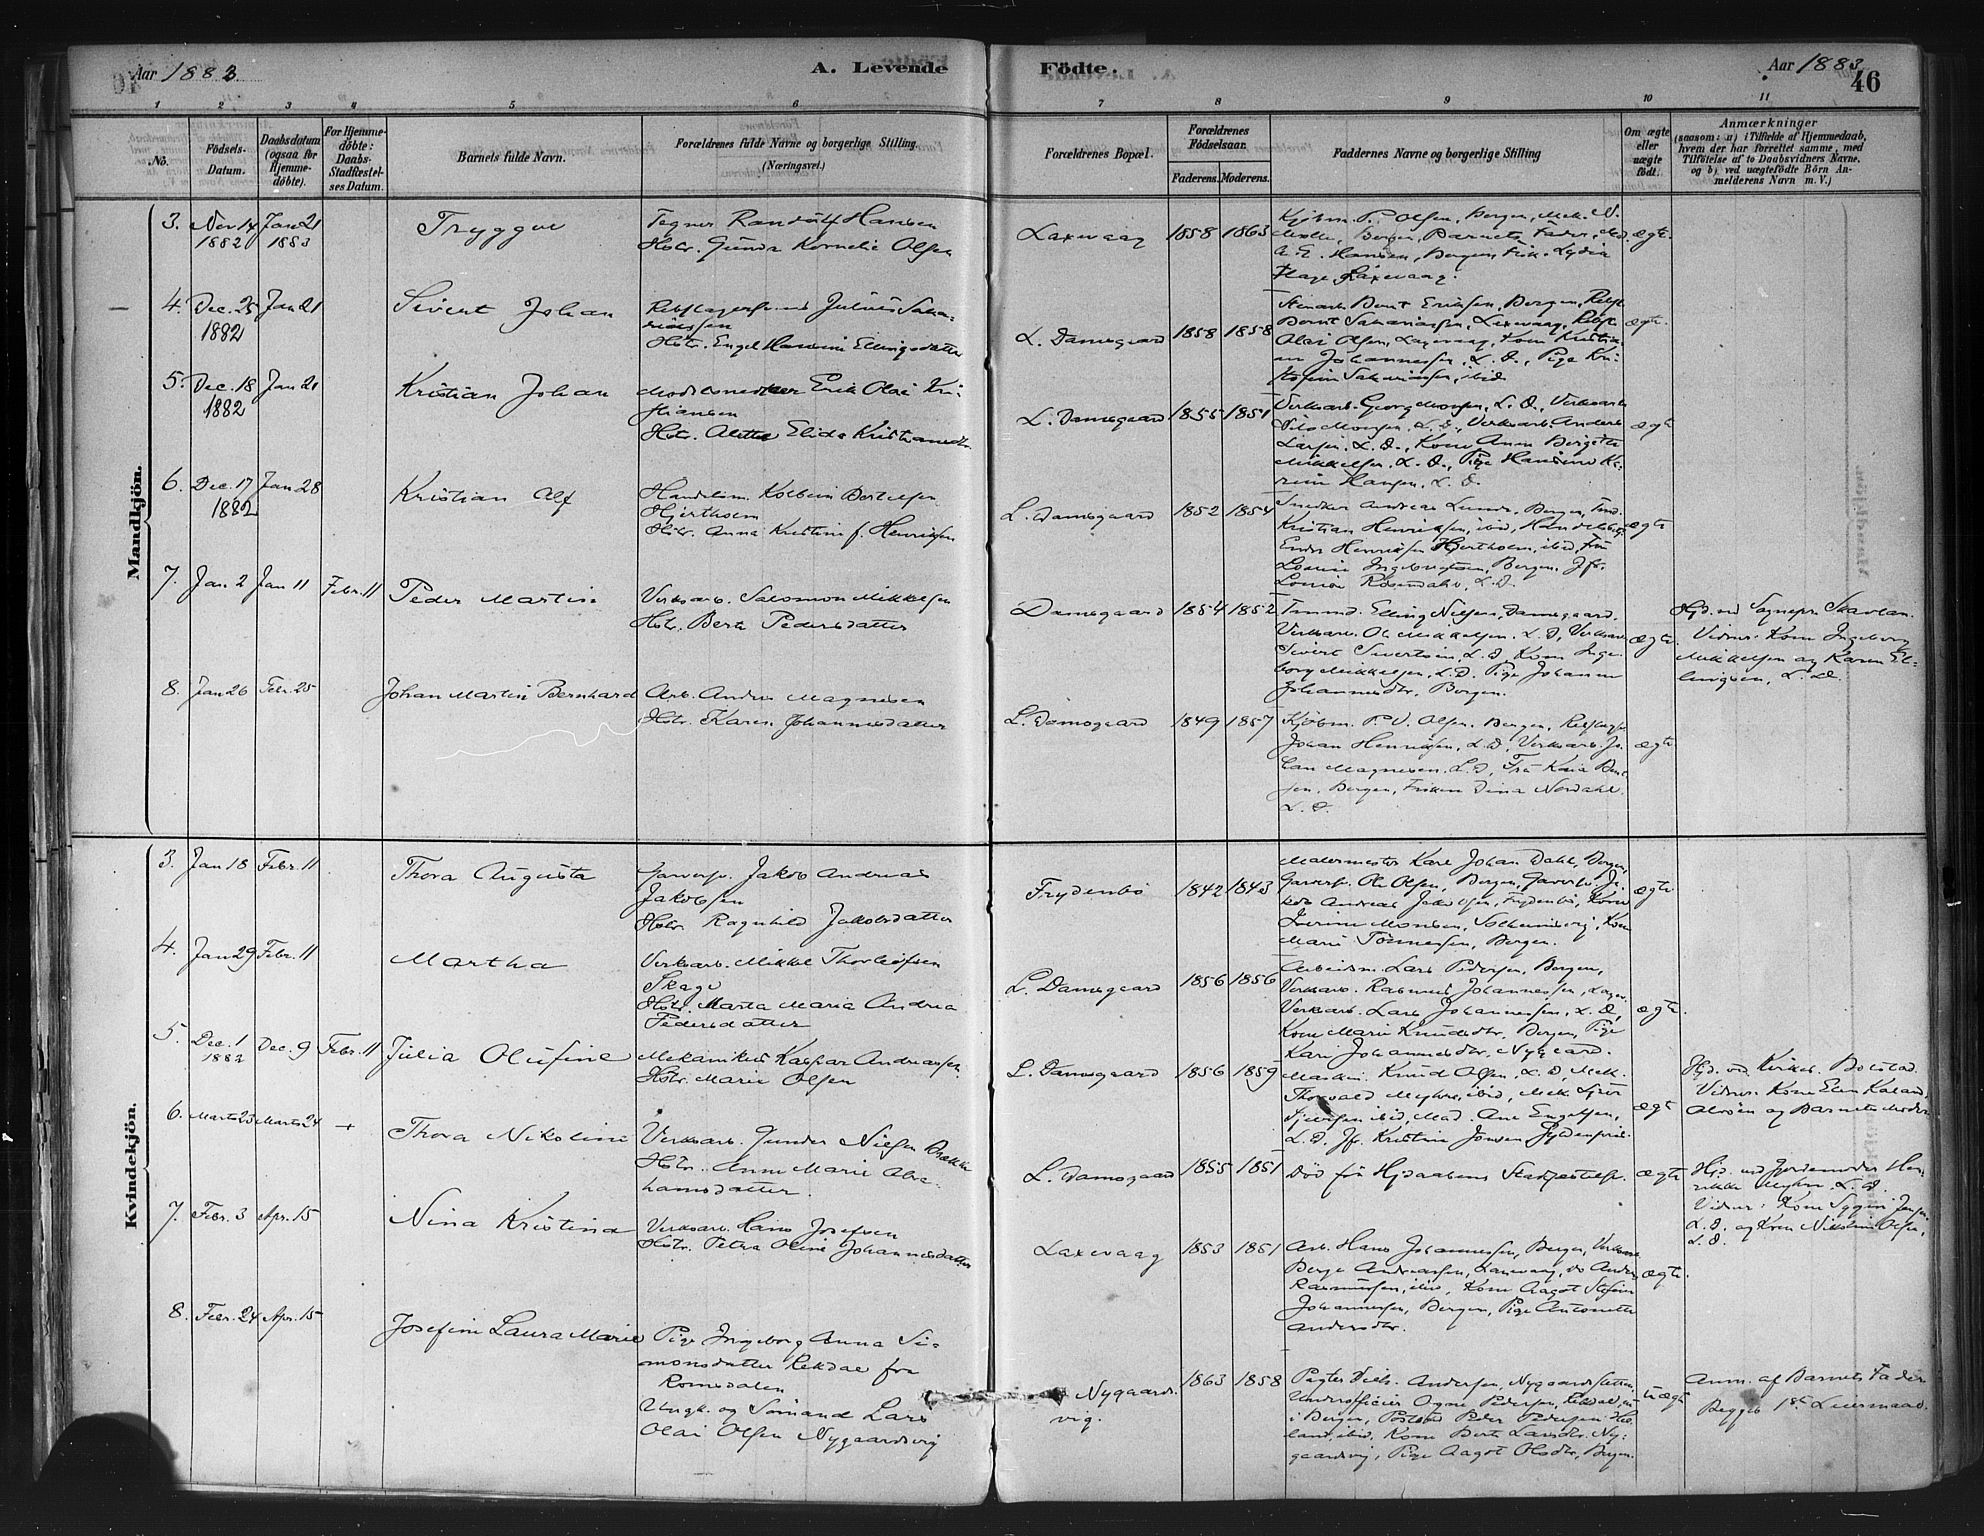 Aar 1883. A. Levende
Födte. Aar 1883
46
1 2 3 4 5 6 7 8 9 10 11
No.
Födsels-
Datum.
Daabsdatum
(ogsaa for
Hjemme-
döbte).
For Hjemme-
döbte:
Daabs-
Stadfæstel-
ses Datum.
Barnets fulde Navn.
Forældrenes fulde Navne og borgerlige Stilling.
(Næringsvei.)
Forældrenes Bopæl.
Forældrenes
Födselsaar.
Faderens. Moderens.
Faddernes Navne og borgerlige Stilling
Om ægte
eller
uægte
födt.
Anmærkninger
(saasom: a) i Tilfælde af Hjemmedaab,
hvem der har forrettet samme, med
Tilföielse af to Daabsvidners Navne,
og b) ved uægtefödte Börn An-
melderens Navn m. V.)
Mandkjön.
3. Nov 14 1882 Jan 21 1883 Tryggve
Tegner Randulf Hansen
Hstr. Gunda Kornelia Olsen
Laxevaag 1858 1863
Kjöbm. P. Olsen, Bergen, Mek. N.
Molle, Bergen, Barnets Fader, Mad.
A. E. Hansen, Bergen, Frk. Lydia
Hage, Laxevaag.
ægte.
4. Dec. 25 1882 Jan 21 Sivert Johan
Julius Saka-
riassen
Hstr. Engel Hansine Ellingsdatter
L. Damsgaard 1858 1858
Bernt Eriksen, Bergen, Rebsl.
Bernt Sakariassen, Laxevaag, Rebsl.
Olai Olsen, Laxevaag, Kone Kristi-
Johannessen, L. D., Pige Kri-
stofine Sakariassen, ibid
ægte.
5. Dec. 18 1882 Jan 21 Kristian Johan
Modelsnedker Erik Olai Kri-
stiansen
Hstr. Alette Elida Kristiansdtr.
L. Damsgaard 1855 1851
Verksarb. Georg Monsen, L. D., Verksarb.
Nils Monsen, L. D., Verksarb. Anders
Larsen, L. D., Kone Anna Bergitte
Mikkelsen, L. D., Pige Hansine Ka-
rine Hansen, L. D.
ægte
6. Dec. 17 1882 Jan 28 Kristian Alf
Handelsm. Kolbein Bertelsen
Hjertholm
Hstr. Anna Kristine f. Henriksen
L. Damsgaard 1852 1854
Snedker Andreas Lunde, Bergen,
Kristian Henriksen, ibid,
Endre Henriksen Hjertholm, ibid, Fru
Lovise Ingebrigtsen, Bergen, Jfr.
Lovise Rosendahl, L. D.
ægte
7. Jan. 2 Jan 11 Febr. 11 Peder Martin
Verksarb. Salomon Mikkelsen
Hstr. Berte Pedersdatter
Damsgaard 1854 1852
Elling Nilsen, Damsgaard.
Verksarb. Ole Mikkelsen, L. D, Verksarb.
Sivert Sivertsen, L. D, Kone Inge-
borg Mikkelsen, L. D, Pige Johanne
Johannesdtr., Bergen.
ægte
Hjd. ved Sognepr. Skavlan.
Vidner: Kone Ingeborg
Mikkelsen og Karen El-
lingsen, L. D.
8. Jan 26 Febr. 25 Johan Martin Bernhard
Arb. Andrei Magnesen
Hstr. Karen Johannesdatter
L. Damsgaard 1849 1857
Kjöbm. P. V. Olsen, Bergen, Rebslager
Johan Henriksen, L. D, Verksarb. Jo-
han Magnesen, L. D, Fru
Bergen, Dina Nordahl
L. D
ægte
Kvindekjön.
3. Jan 18 Febr. 11 Thora Augusta
Garversv. Jakob Andreas
Jakobsen
Hstr. Ragnhild Jakobsdatter
Frydenbö 1842 1843
Malermester Karl Johan Dahl, Bergen,
Garversv. Ole Olsen, Bergen, Garversv. Ja-
kob Andreas Jakobsen, Frydenbö, Kone
Severine Monsen, Solheimsvig, Kone
Marie Tönnesen, Bergen.
ægte
4. Jan 29 Febr. 11 Martha
Verksarb. Mikkel Thorleifsen
Skage
Hstr. Marta Maria Andrea
Pedersdatter
L. Damsgaard 1856 1856
Arbeidsm. Lars Pedersen, Bergen,
Verksarb. Rasmus Johannessen,
Verksarb. Lars Johannessen, L. D,
Kone Marie Knudsdtr., Bergen, Pige
Kari Johannesdtr., Nygaard.
ægte.
5. Dec. 1 1882 Dec. 9 Febr. 11 Julia Olufine
Mekanikus Kaspar Andreassen
Hstr. Marie Olsen
L. Damsgaard 1856 1859
Maskin. Knud Olsen, L. D, Mek.
Thorvald Myhre, ibid, Mek.
ibid, Mad. Ane Engelsen,
L. D, Jfr. Kristine Jonsen
ægte
Hjd. ved Kirkes. Bolstad.
Vidner: Kone Elen Kaland,
Alvöen og Barnets Moder
6. Marts 23 Marts 24 + Thora Nikoline
Verksarb. Gunder Nilsen Brekke
Hstr. Anne Marie Abra-
hamsdatter.
L. Damsgaard 1855 1851
Död för Hjdaabens Stadfæstelse.
ægte
Hjd. ved Jordemoder Hen-
rikke Myhre, L. D.
Vidner: Kone Jensen,
L. D. og Kone Nikoline Olsen,
L. D.
7. Febr. 3 Apr. 15 Nina Kristina
Verksarb. Hans Josefsen
Hstr. Petra Oline Johannesdatter
Laxevaag 1853 1851
Arb. Hans Johannessen, Bergen, Verksarb.
Berge Andreassen, Laxevaag, do Anders
Rasmussen, ibid, Kone Aagot Stefine
Johannessen, Bergen, Pige Antonette
Andersdtr.
ægte.
8. Febr. 24 Apr. 15 Josefine Laura Marie
Pige Ingeborg Anna Si-
monsdatter Rekdal fra
Romsdalen
Ungk. og Sömand Lars
Olai Olsen Nygaardsvig
Nygaards-
vig.
1863 1858
Pigtor Andersen,
Underofficier Ogne Pedersen Rekdal,
i Bergen, Peder Pedersen
ibid, Kone Berte Larsdtr. Ny-
gaardsvig, Pige Aagot Olsdtr., Bergen.
uægte
Anm. af Barnets Fader
Begges 1ste Leiermaal.